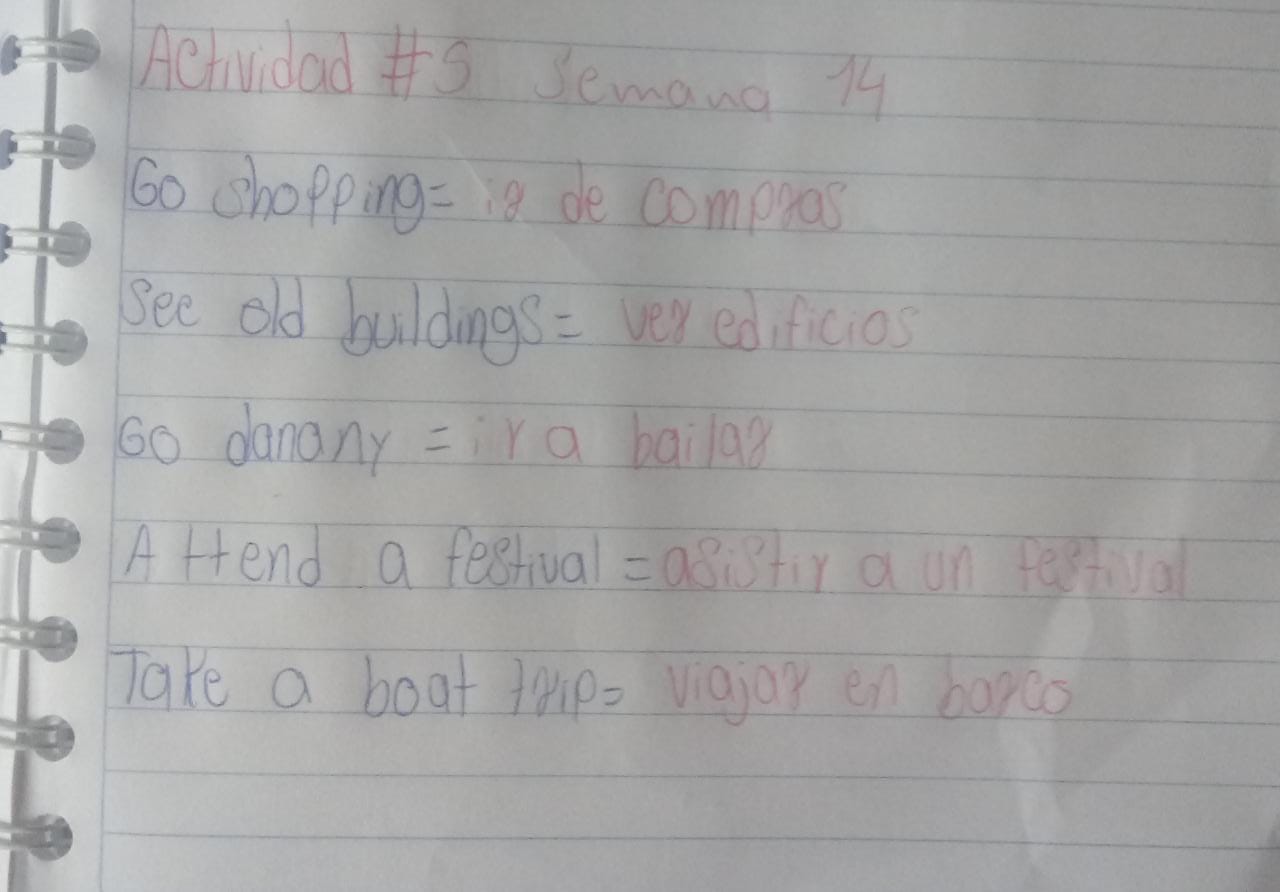 Actividad #5 Semana 14
Go shopping= ir de compras
See old buildings= ver edificios
Go danany = ir a bailar
Attend a festival = asistir a un festival
Take a boat trip= viajar en barco